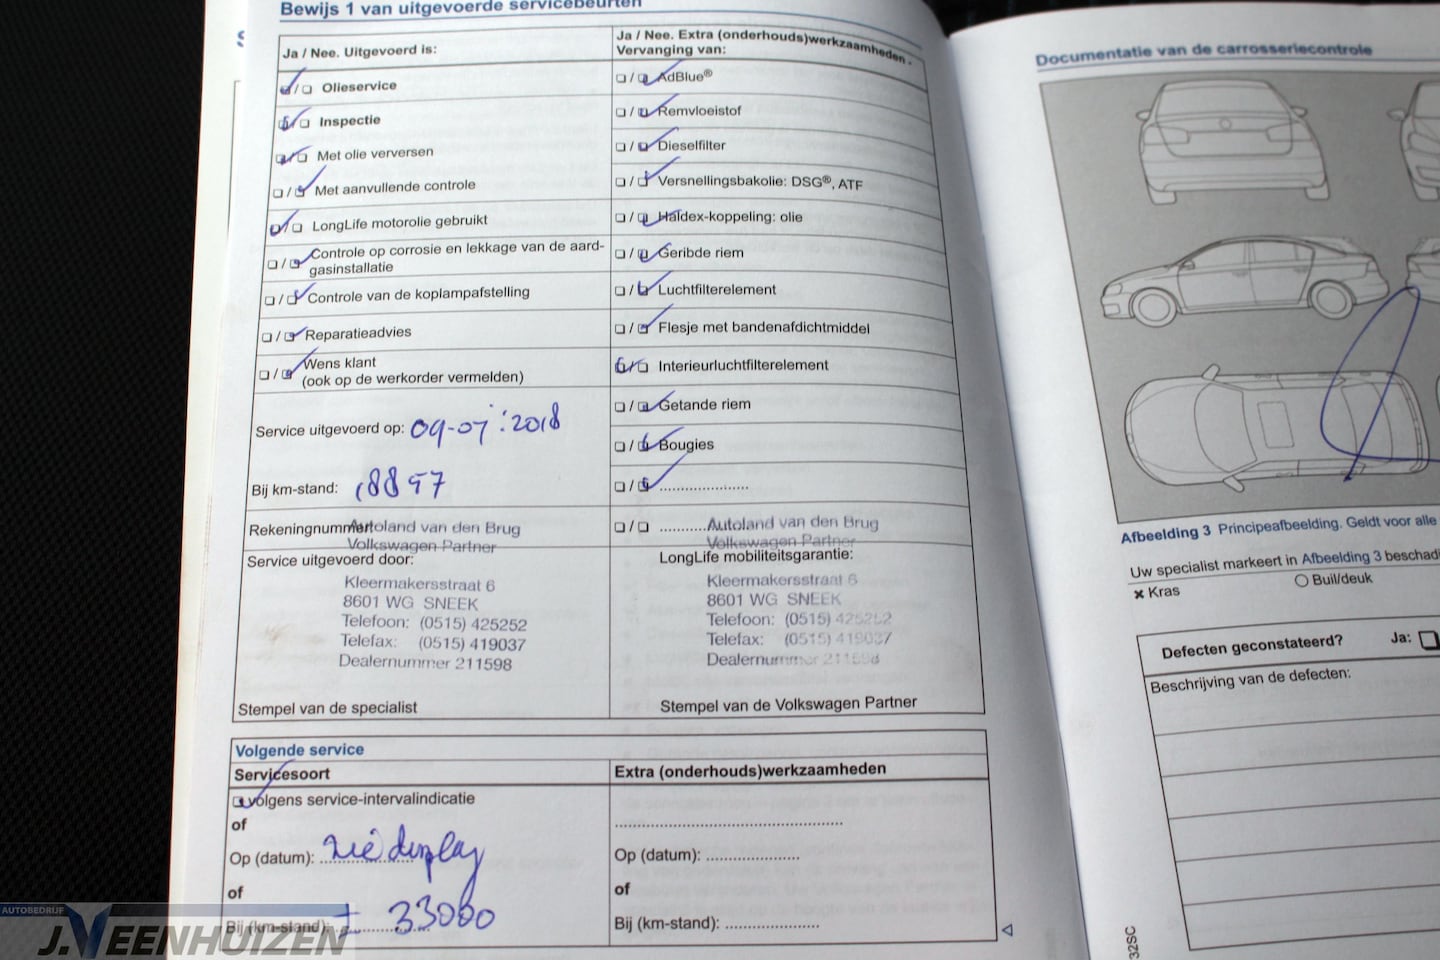 Bewijs 1 van uitgevoerde servicebeurten
Ja / Nee. Uitgevoerd is:
Olieservice
Inspectie
Met olie verversen
Met aanvullende controle
LongLife motorolie gebruikt
Controle op corrosie en lekkage van de aard-
gasinstallatie
Controle van de koplampafstelling
Reparatieadvies
Wens klant
(ook op de werkorder vermelden)
Service uitgevoerd op: 09-07-2018
Bij km-stand: 18897
Rekeningnummer:
Autoland van den Brug
Volkswagen Partner
Service uitgevoerd door:
Kleermakersstraat 6
8601 WG SNEEK
Telefoon: (0515) 425252
Telefax: (0515) 419037
Dealernummer 211598
Stempel van de specialist
Ja / Nee. Extra (onderhouds)werkzaamheden.
Vervanging van:
AdBlue®
Remvloeistof
Dieselfilter
Versnellingsbakolie: DSG®, ATF
Haldex-koppeling: olie
Geribde riem
Luchtfilterelement
Flesje met bandenafdichtmiddel
Interieurluchtfilterelement
Getande riem
Bougies
Autoland van den Brug
Volkswagen Partner
LongLife mobiliteitsgarantie:
Kleermakersstraat 6
8601 WG SNEEK
Telefoon: (0515) 425252
Telefax: (0515) 419037
Dealernummer 211598
Stempel van de Volkswagen Partner
Volgende service
Servicesoort
volgens service-intervalindicatie
of
Op (datum): zie display
of
Bij (km-stand): ± 33000
Extra (onderhouds)werkzaamheden
Op (datum):
of
Bij (km-stand):
Documentatie van de carrosseriecontrole
Afbeelding 3 Principeafbeelding. Geldt voor alle
Uw specialist markeert in Afbeelding 3
Kras
Buil/deuk
Defecten geconstateerd? Ja:
Beschrijving van de defecten:
32SC
AUTOBEDRIJF
J. VEENHUIZEN